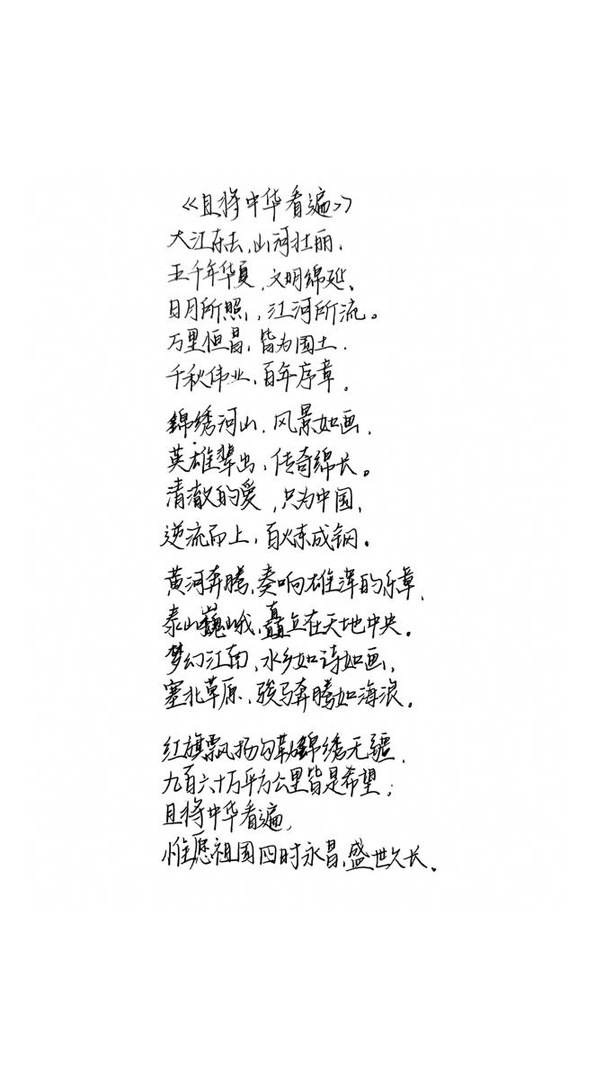 《且将中华看遍》
大江东去，山河壮丽，
五千年华夏，文明绵延、
日月所照，江河所流。
万里恒昌，皆为国土．
千秋伟业，百年序章．
錦绣河山．风景如画．
英雄辈出，传奇绵长。
清澈的爱，只为中国，
逆流而上，百炼成钢。
黄河奔腾，奏响雄浑的乐章．
泰山巍峨，矗立在天地中央。
梦幻江南，水乡如诗如画，
塞北草原、骏马奔腾如海浪。
红旗飘扬勾勒錦绣无疆．
九百六十万平方公里皆是希望；
且将中华看遍，
惟愿祖国四时永昌，盛世久长．